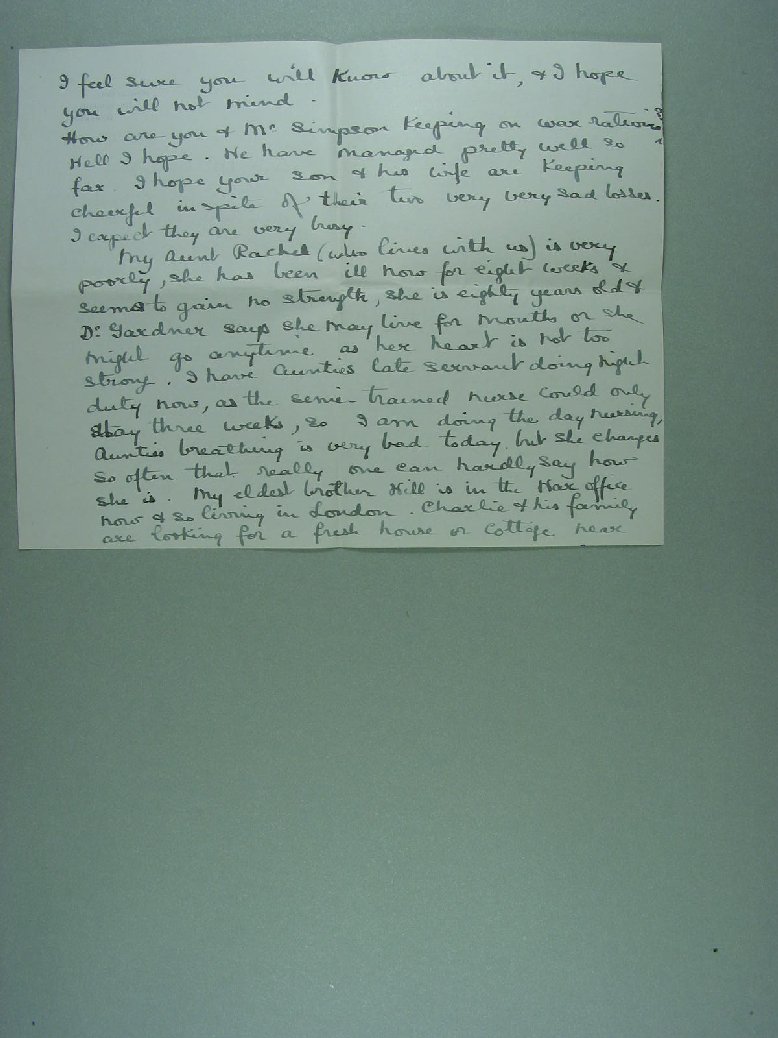 I feel sure you will know about it, & I hope
you will not mind.
How are you & Mr Simpson keeping on war rations?
Well I hope. We have managed pretty well so
far. I hope your son & his wife are keeping
cheerful in spite of their two very very sad losses.
I expect they are very busy.
My Aunt Rachel (who lives with us) is very
poorly, she has been ill now for eight weeks &
seems to gain no strength, she is eighty years old &
Dr Gardner says she may live for months or she
might go anytime as her heart is not too
strong. I have Aunties late servant doing night
duty now, as the semi-trained nurse could only
stay three weeks, so I am doing the day nursing,
Aunties breathing is very bad today but she changes
so often that really one can hardly say how
she is. My eldest brother Will is in the War office
now & so living in London. Charlie & his family
are looking for a fresh house or cottage near